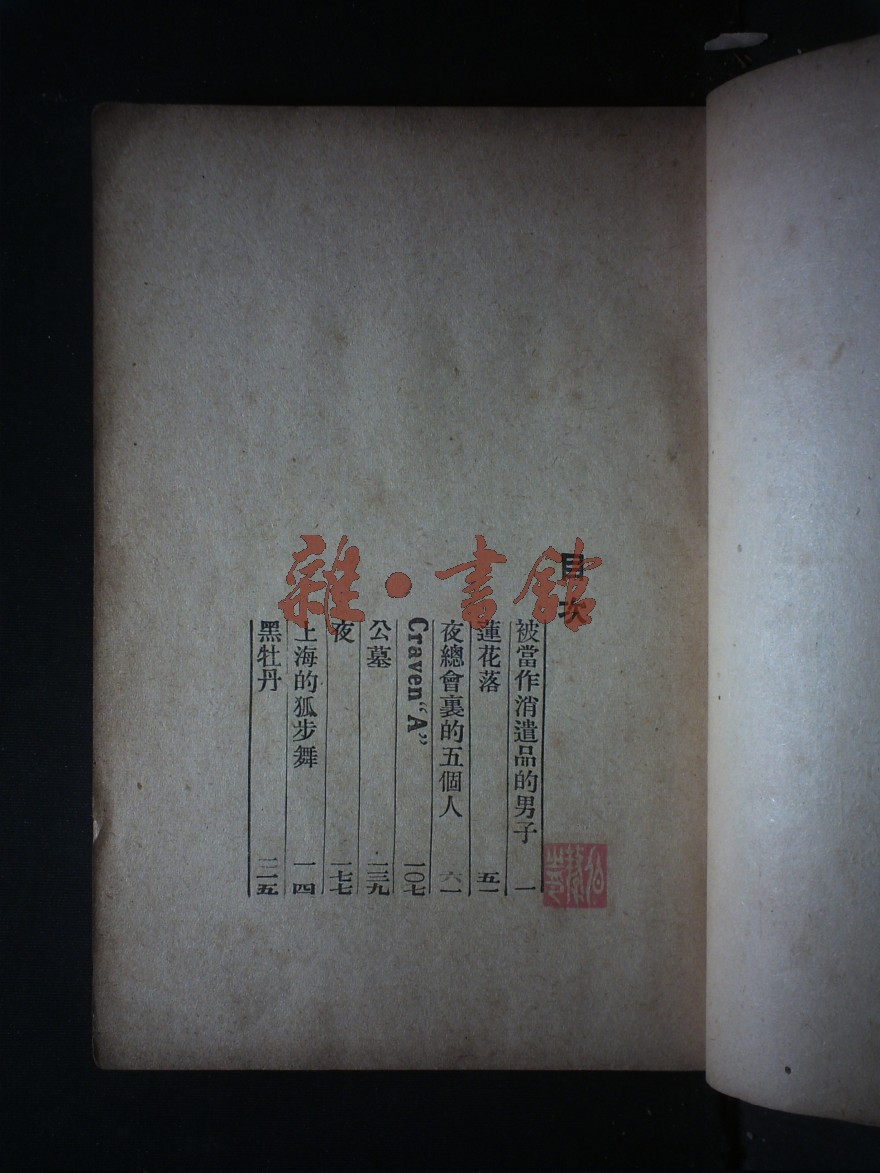 雜·書館
目次
被當作消遣品的男子 一
蓮花落 五一
夜總會裏的五個人 六一
Craven“A” 一〇七
公墓 一三九
夜 一七七
上海的狐步舞 一一四
黑牡丹 二一五